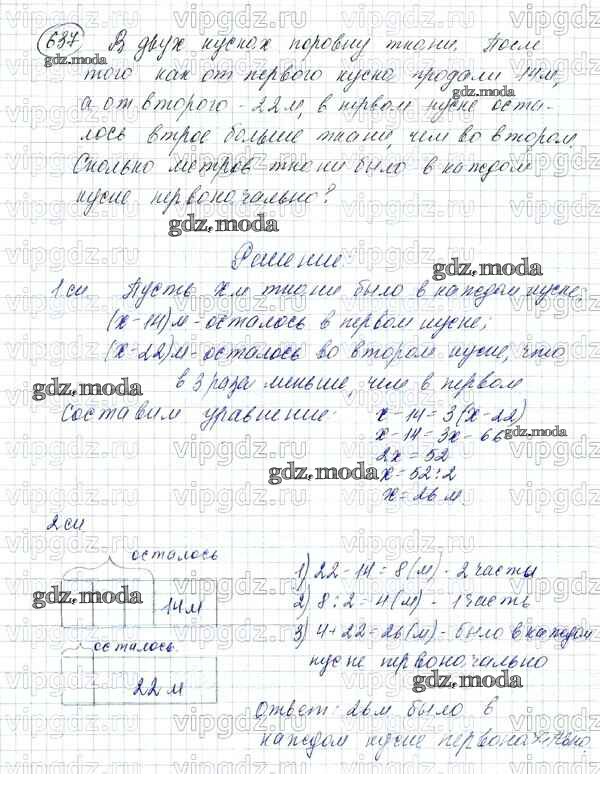 637 В двух кусках поровну ткани. После
того как от первого куска продали 14м,
а от второго - 22м, в первом куске оста-
лось втрое больше ткани, чем во втором.
Сколько метров ткани было в каждом
куске первоначально?
Решение:
1 сп. Пусть х м ткани было в каждом куске,
(х-14)м - осталось в первом куске;
(х-22)м - осталось во втором куске, что
в 3 раза меньше, чем в первом
Составим уравнение: х-14=3(х-22)
х-14=3х-66
2х=52
х=52:2
х=26 м.
2 сп
осталось
14м
осталось
22 м
1) 22-14=8(м) - 2 части
2) 8:2=4(м) - 1 часть
3) 4+22=26(м) - было в каждом
куске первоначально
Ответ: 26м было в
каждом куске первоначально.
gdz.moda
vipgdz.ru